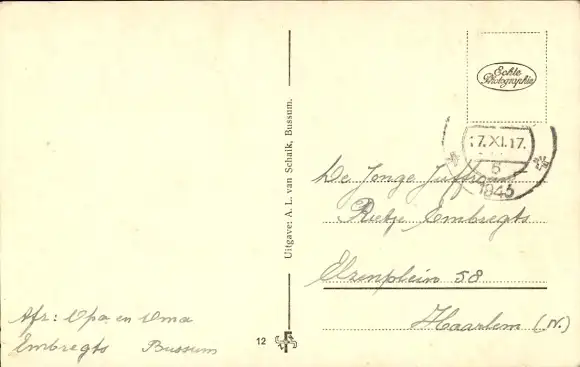 Echte
Photographie
7.XI.17.
1945
De Jonge Juffrouw
Rietje Embregts
Elzenplein 58
Haarlem (N.)
Afz: Opa en Oma
Embregts Bussum
Uitgave: A. L. van Schaik, Bussum.
12